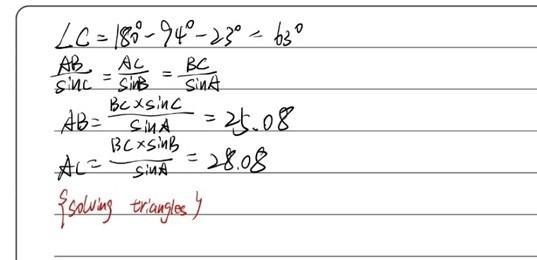 ∠C = 180° - 94° - 23° = 63°
AB/sinC = AC/sinB = BC/sinA
AB = BC×sinC/sinA = 25.08
AC = BC×sinB/sinA = 28.08
{solving triangles}